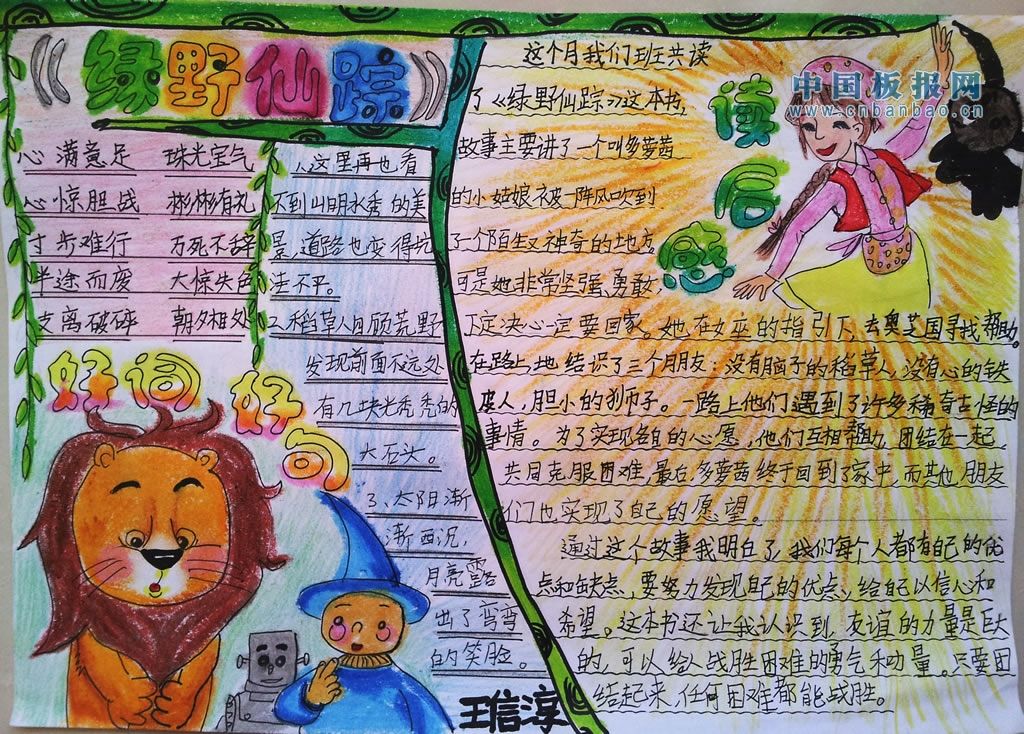 《绿野仙踪》
心满意足 珠光宝气
心惊胆战 彬彬有礼
寸步难行 万死不辞
半途而废 大惊失色
支离破碎 朝夕相处
好词好句
1、这里再也看
不到山明水秀的美
景,道路也变得坑
洼不平。
2、稻草人回顾荒野
发现前面不远处
有几块光秃秃的
大石头。
3、太阳渐
渐西沉,
月亮露
出了弯弯
的笑脸。
王信淳
读后感
这个月我们班共读
了《绿野仙踪》这本书,
故事主要讲了一个叫多萝茜
的小姑娘被一阵风吹到
了一个陌生又神奇的地方
可是她非常坚强、勇敢
下定决心一定要回家。她在女巫的指引下,去奥芝国寻找帮助。
在路上她结识了三个朋友:没有脑子的稻草人,没有心的铁
皮人,胆小的狮子。一路上他们遇到了许多稀奇古怪的
事情。为了实现各自的心愿,他们互相帮助,团结在一起
共同克服困难,最后,多萝茜终于回到了家中,而其他朋友
们也实现了自己的愿望。
通过这个故事我明白了,我们每个人都有自己的优
点和缺点,要努力发现自己的优点,给自己以信心和
希望。这本书还让我认识到,友谊的力量是巨大
的,可以给人战胜困难的勇气和力量。只要团
结起来,任何困难都能战胜。
中国板报网
www.cnbanbao.cn